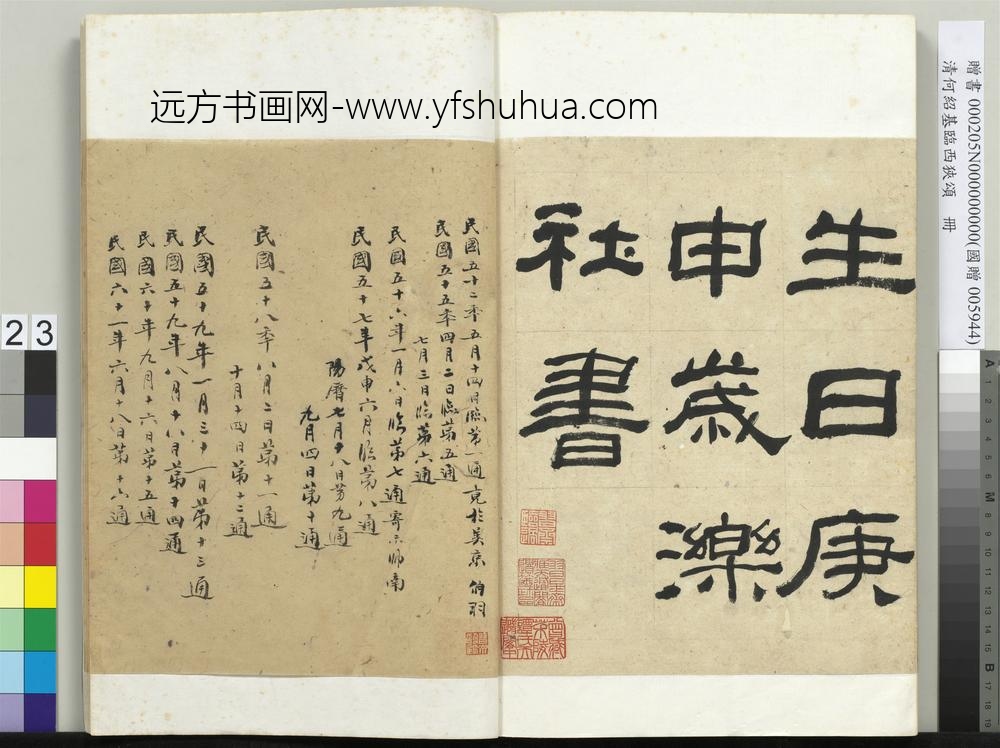 远方书画网-www.yfshuhua.com
生日庚
申歲濼
社書
民國五十二年五月十四日臨第一通竟於吳京 伯羽
民國五十五年四月二日臨第五通
七月三日臨第六通
民國五十六年一月六日臨第七通寄示師南
民國五十七年戊申六月臨第八通
陽曆七月十八日第九通
九月四日第十通
民國五十八年八月二日第十一通
十月十四日第十二通
民國五十九年一月三十一日第十三通
民國五十九年八月十八日第十四通
民國六十年九月十六日第十五通
民國六十一年六月十八日第十六通
贈書 000205N000000000(國贈 005944)
清何紹基臨西狹頌 冊
23
A 1 2 3 4 5 6 M 8 9 10 11 12 13 14 15 B 17 18 19